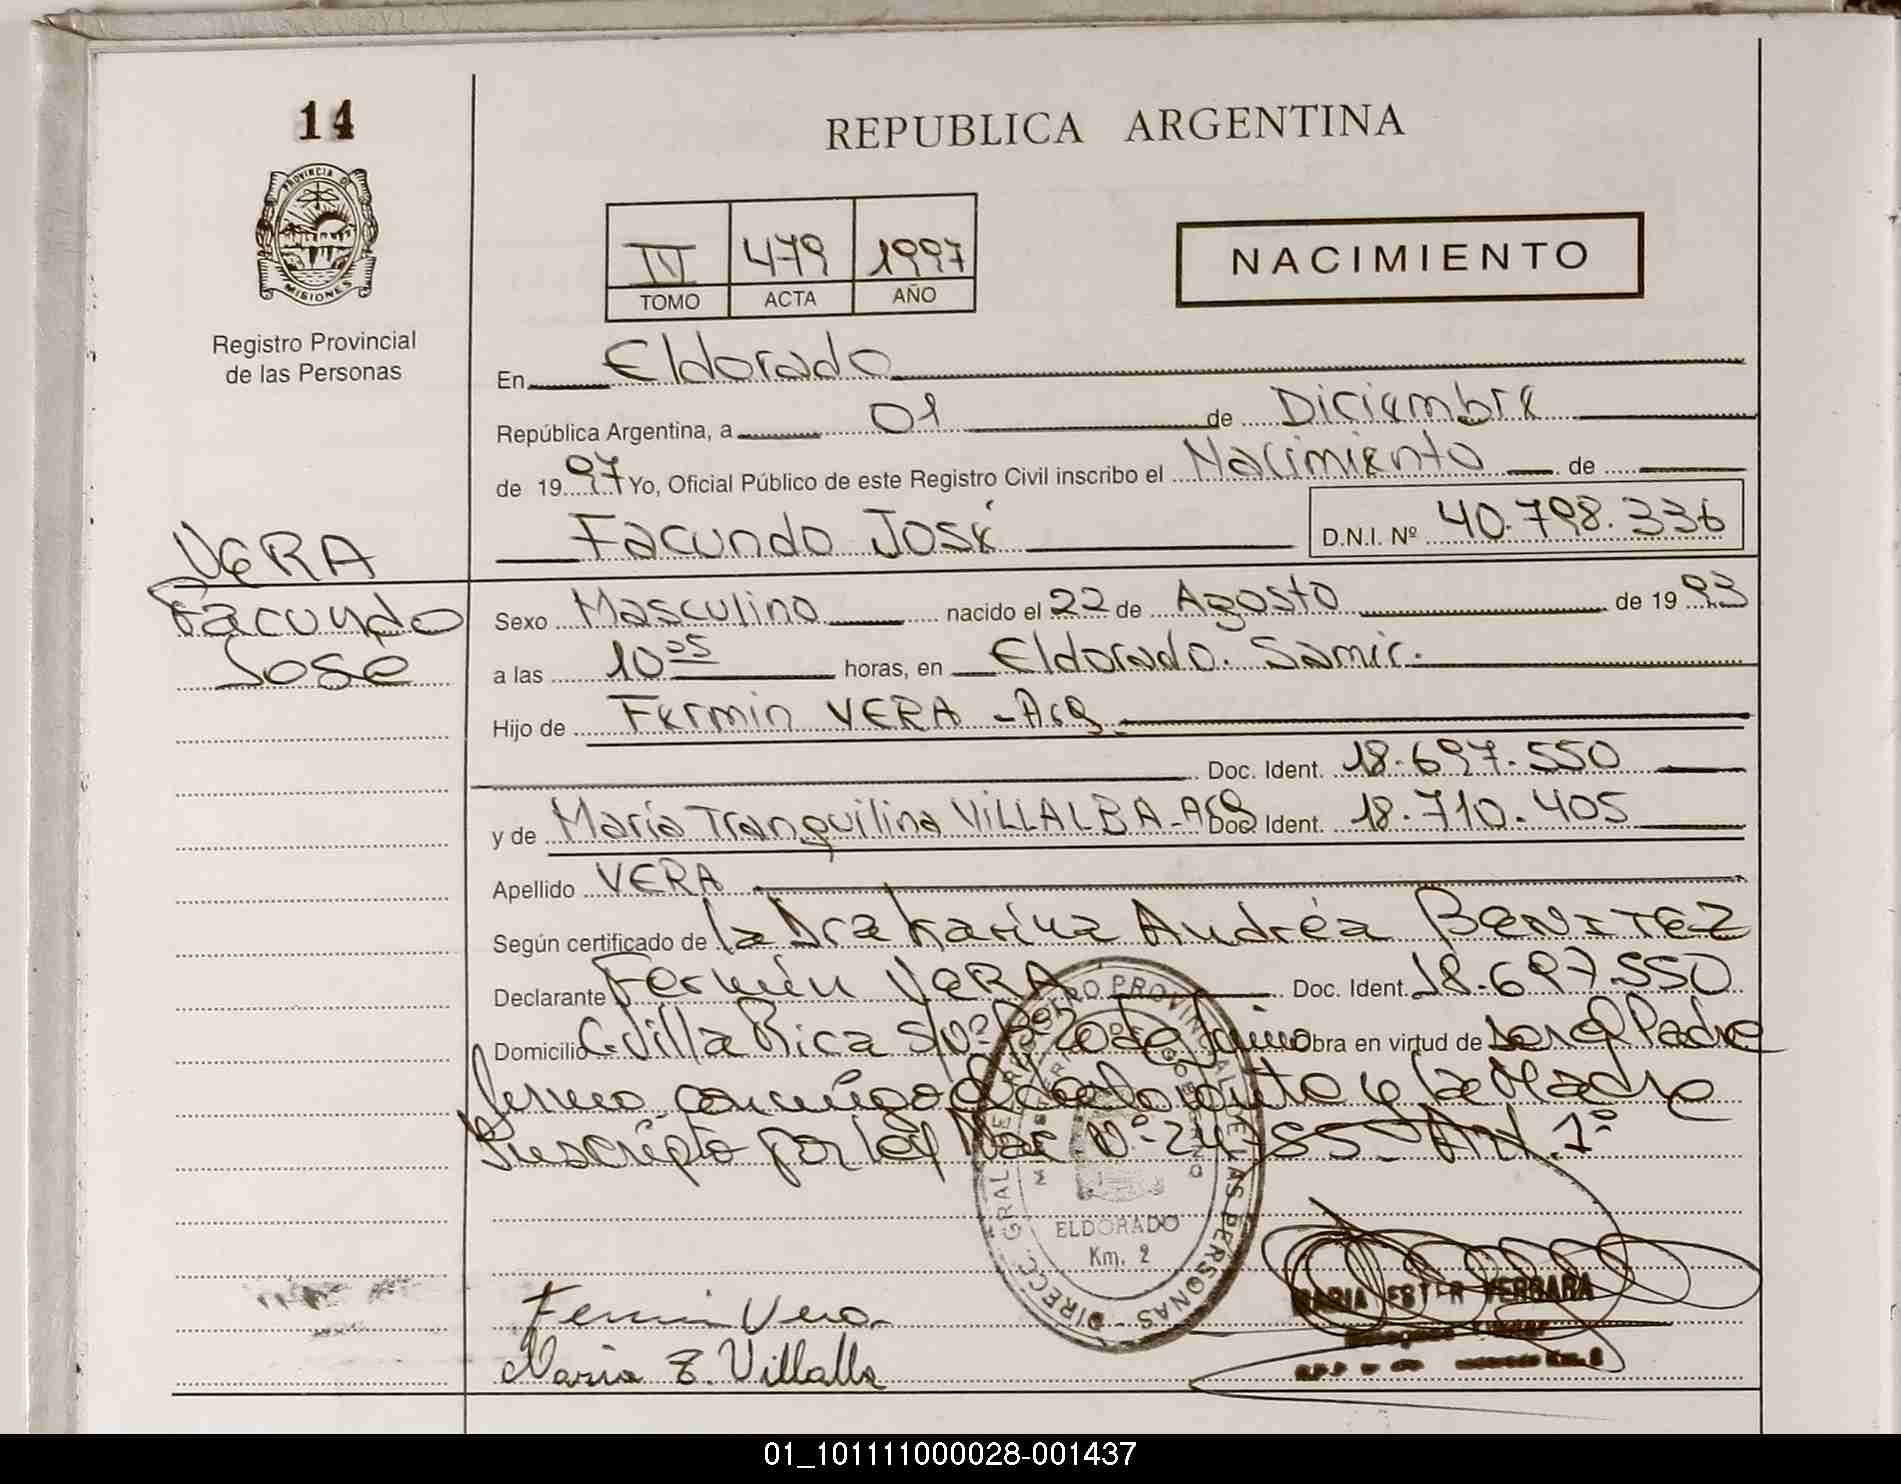 14
REPUBLICA ARGENTINA
PROVINCIA DE
MISIONES
Registro Provincial
de las Personas
IV 479 1997
TOMO ACTA AÑO
NACIMIENTO
En Eldorado
República Argentina, a 01 de Diciembre
de 1997 Yo, Oficial Público de este Registro Civil inscribo el Nacimiento de
Facundo José D.N.I. Nº 40.798.336
VERA
Facundo
José
Sexo Masculino nacido el 22 de Agosto de 1993
a las 10 05 horas, en Eldorado. Samic.
Hijo de Fermin VERA - Arg
Doc. Ident. 18.697.550
y de María Tranquilina VILLALBA - Arg Doc. Ident. 18.710.405
Apellido VERA
Según certificado de la Dra Karina Andréa BENITEZ
Declarante Fermín VERA Doc. Ident. 18.697.550
Domicilio C. Villa Rica S/Nº Obra en virtud de ser el Padre
firma conmigo el acto y la Madre
Inscripto por Ley Nac Nº 24.755 - Art. 1º
DIRECC. GRAL. DE REGISTRO PROVINCIAL DE LAS PERSONAS
ELDORADO
Km. 2
Fermin Vera
Maria T. Villalba
MARIA ESTER VERGARA
01_101111000028-001437